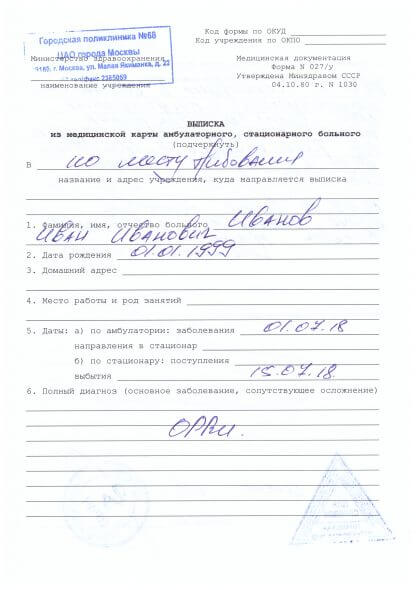 Городская поликлиника №68
ЦАО города Москвы
г. Москва, ул. Малая Якиманка, д. 22
2385059
Министерство здравоохранения
наименование учреждения
Код формы по ОКУД
Код учреждения по ОКПО
Медицинская документация
Форма N 027/у
Утверждена Минздравом СССР
04.10.80 г. N 1030
ВЫПИСКА
из медицинской карты амбулаторного, стационарного больного
(подчеркнуть)
В по месту требования
название и адрес учреждения, куда направляется выписка
1. Фамилия, имя, отчество больного Иванов
Иван Иванович
2. Дата рождения 01.01.1999
3. Домашний адрес
4. Место работы и род занятий
5. Даты: а) по амбулатории: заболевания 01.07.18
направления в стационар
б) по стационару: поступления
выбытия 15.07.18
6. Полный диагноз (основное заболевание, сопутствующее осложнение)
ОРВИ.